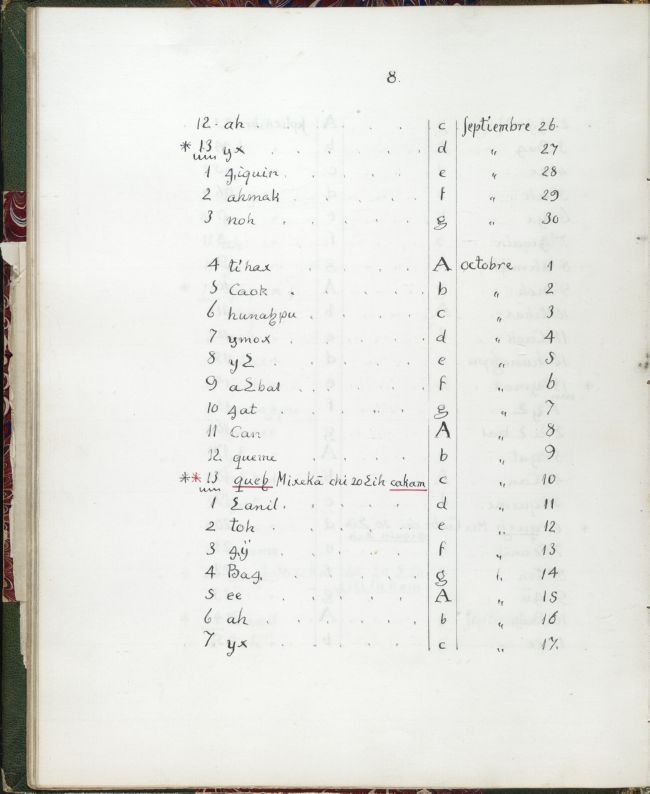 8.
12. ah . . . . c Septiembre 26.
* 13 yx . . . . d „ 27
1 g,iquin . . . . e „ 28
2 ahmak . . . . f „ 29
3 noh . . . . g „ 30
4 tihax . . . . A octobre 1
5 Caok . . . . b „ 2
6 hunahpu . . . . c „ 3
7 ymox . . . . d „ 4
8 yƸ . . . . e „ 5
9 aƸbal . . . . f „ 6
10 gat . . . . g „ 7
11 Can . . . . A „ 8
12. queme . . . . b „ 9
** 13 queh Mixekā chi 20 Ƹih cakam c „ 10
1 Ƹanil . . . . d „ 11
2 toh . . . . e „ 12
3 g,ÿ . . . . f „ 13
4 Bag, . . . . g „ 14
5 ee . . . . A „ 15
6 ah . . . . b „ 16
7. yx . . . . c „ 17.